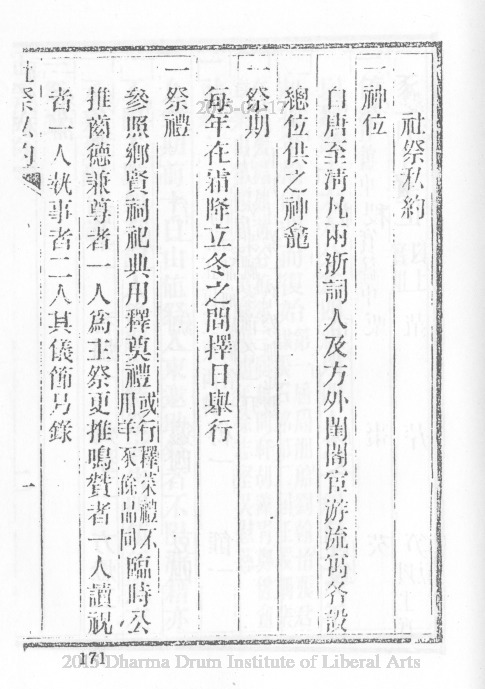 社祭私約
一神位
自唐至淸凡兩浙詞人及方外閨閣宦游流寓各設
總位供之神龕
一祭期
每年在霜降立冬之間擇日舉行
一祭禮
參照鄕賢祠祀典用釋奠禮或行釋菜禮不用羊豕餘品同臨時公
推齒德兼尊者一人爲主祭更推鳴贊者一人讀祝
者一人執事者二人其儀節另錄
社祭私約
一
171
2015 Dharma Drum Institute of Liberal Arts